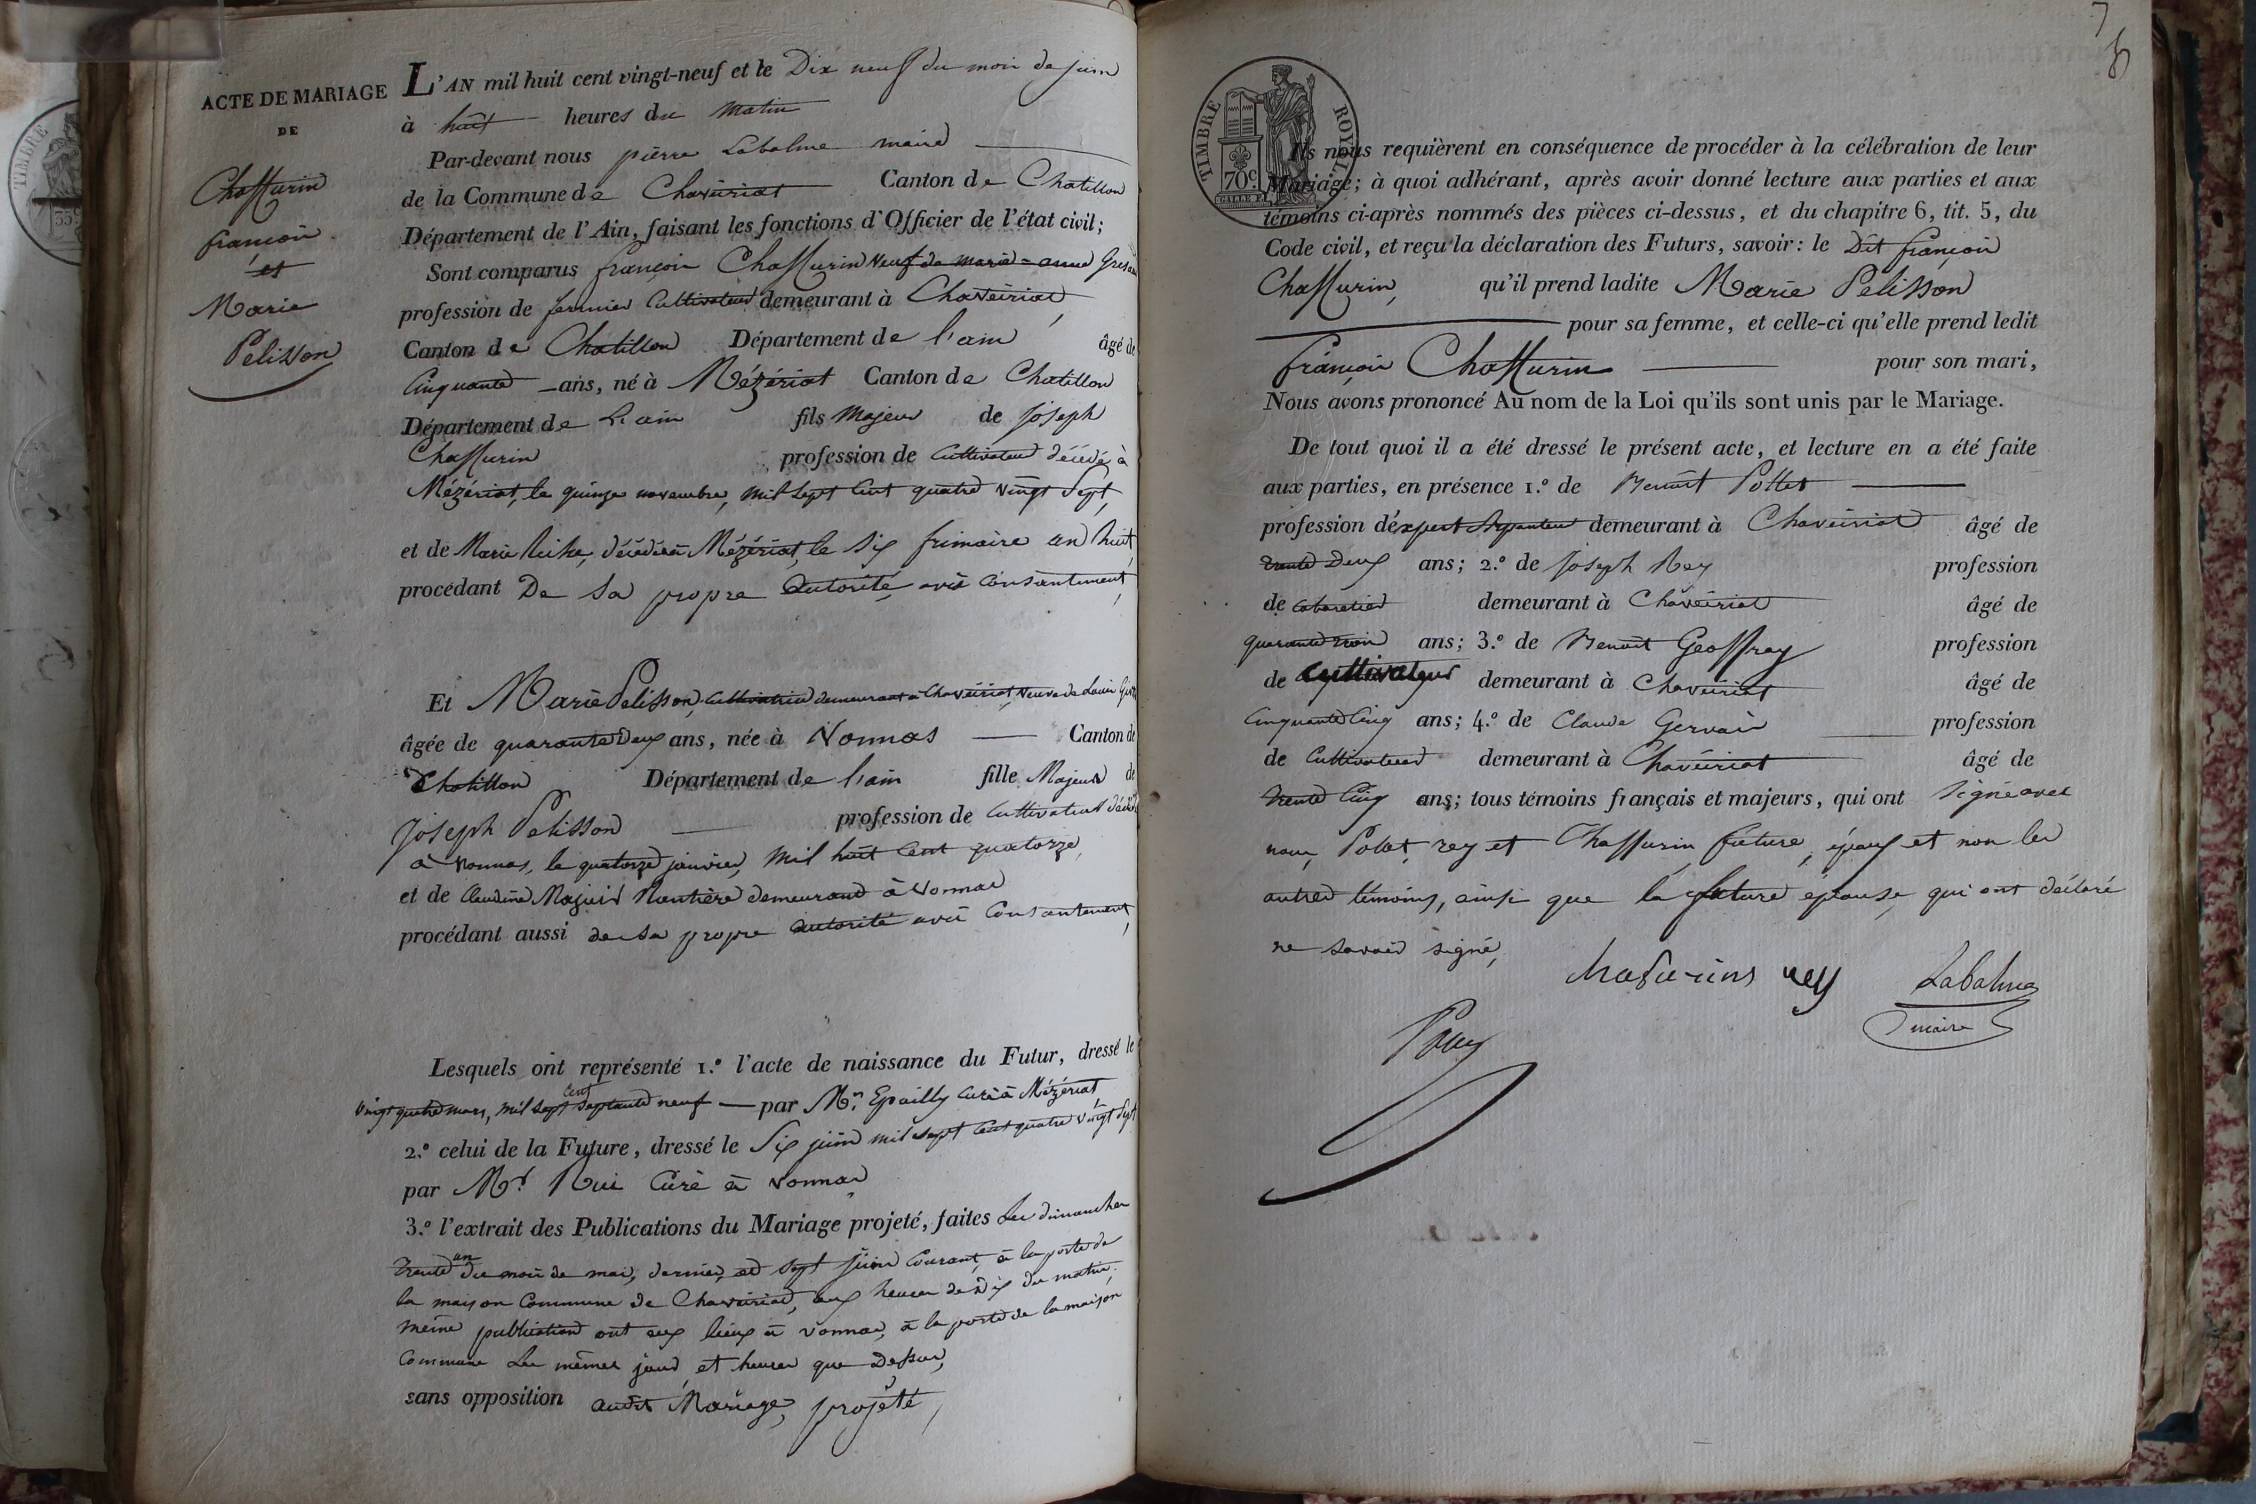 ACTE DE MARIAGE
DE
Chaffurin
françois
et
Marie
Pelisson
L'AN mil huit cent vingt-neuf et le Dix neuf du mois de juin
à huit heures du matin
Par-devant nous pierre Labalme maire
de la Commune de Chaveiriat Canton de Chatillon
Département de l'Ain, faisant les fonctions d'Officier de l'état civil;
Sont comparus françois Chaffurin veuf de marie-anne
profession de fermier Cultivateur demeurant à Chaveiriat,
Canton de Chatillon Département de l'ain âgé de
Cinquante ans, né à Mézériat Canton de Chatillon
Département de L'ain fils Majeur de joseph
Chaffurin profession de Cultivateur décédé à
Mézériat, le quinze novembre, mil sept Cent quatre vingt Sept,
et de Marie décédée à Mézériat, le six frimaire an huit,
procédant De Sa propre autorité, avec Consantement,
Et Marie Pelisson, Cultivatrice demeurant à Chaveiriat, veuve de Louis
âgée de quarante Deux ans, née à Vonnas Canton de
Chatillon Département de l'ain fille Majeur de
joseph Pelisson profession de Cultivateur décédé
à Vonnas, le quatorze janvier, Mil huit Cent quatorze,
et de Claudine Demeurand à Vonnas
procédant aussi de Sa propre autorité avec Consantement,
Lesquels ont représenté 1.º l'acte de naissance du Futur, dressé le
vingt quatre mars, mil sept Cent Septante neuf par Mr. Epailly Curé à Mézériat
2.º celui de la Future, dressé le Six juin mil sept Cent quatre vingt Sept
par Mr. Curé à Vonnas
3.º l'extrait des Publications du Mariage projeté, faites Les dimanches
Trente un du mois de mai, dernier, et sept juin Courant, à la porte de
la maison Commune de Chaveiriat, aux heures de Dix du matin,
même publication ont eux lieux à Vonnas, à la porte de la maison
Commune Les mêmes jours, et heures que Dessus,
sans opposition audit Mariage, projeté,
7
TIMBRE ROYAL
70c
Ils nous requièrent en conséquence de procéder à la célébration de leur
Mariage; à quoi adhérant, après avoir donné lecture aux parties et aux
témoins ci-après nommés des pièces ci-dessus, et du chapitre 6, tit. 5, du
Code civil, et reçu la déclaration des Futurs, savoir: le Dit françois
Chaffurin, qu'il prend ladite Marie Pelisson
pour sa femme, et celle-ci qu'elle prend ledit
françois Chaffurin pour son mari,
Nous avons prononcé Au nom de la Loi qu'ils sont unis par le Mariage.
De tout quoi il a été dressé le présent acte, et lecture en a été faite
aux parties, en présence 1.º de Benoit Pollet
profession d'éxpert Arpanteur demeurant à Chaveiriat âgé de
trente Deux ans; 2.º de joseph Rey profession
de Cabaretier demeurant à Chaveiriat âgé de
quarante trois ans; 3.º de Benoit Geoffray profession
de Cultivateur demeurant à Chaveiriat âgé de
Cinquante Cinq ans; 4.º de Claude Gervais profession
de Cultivateur demeurant à Chaveiriat âgé de
trente Cinq ans; tous témoins français et majeurs, qui ont Signé avec
nous, Pollet, rey et Chaffurin future, épaux et non les
autres témoins, ainsi que la future épouse, qui ont déclaré
ne savoir signé,
rey
Labalme
maire